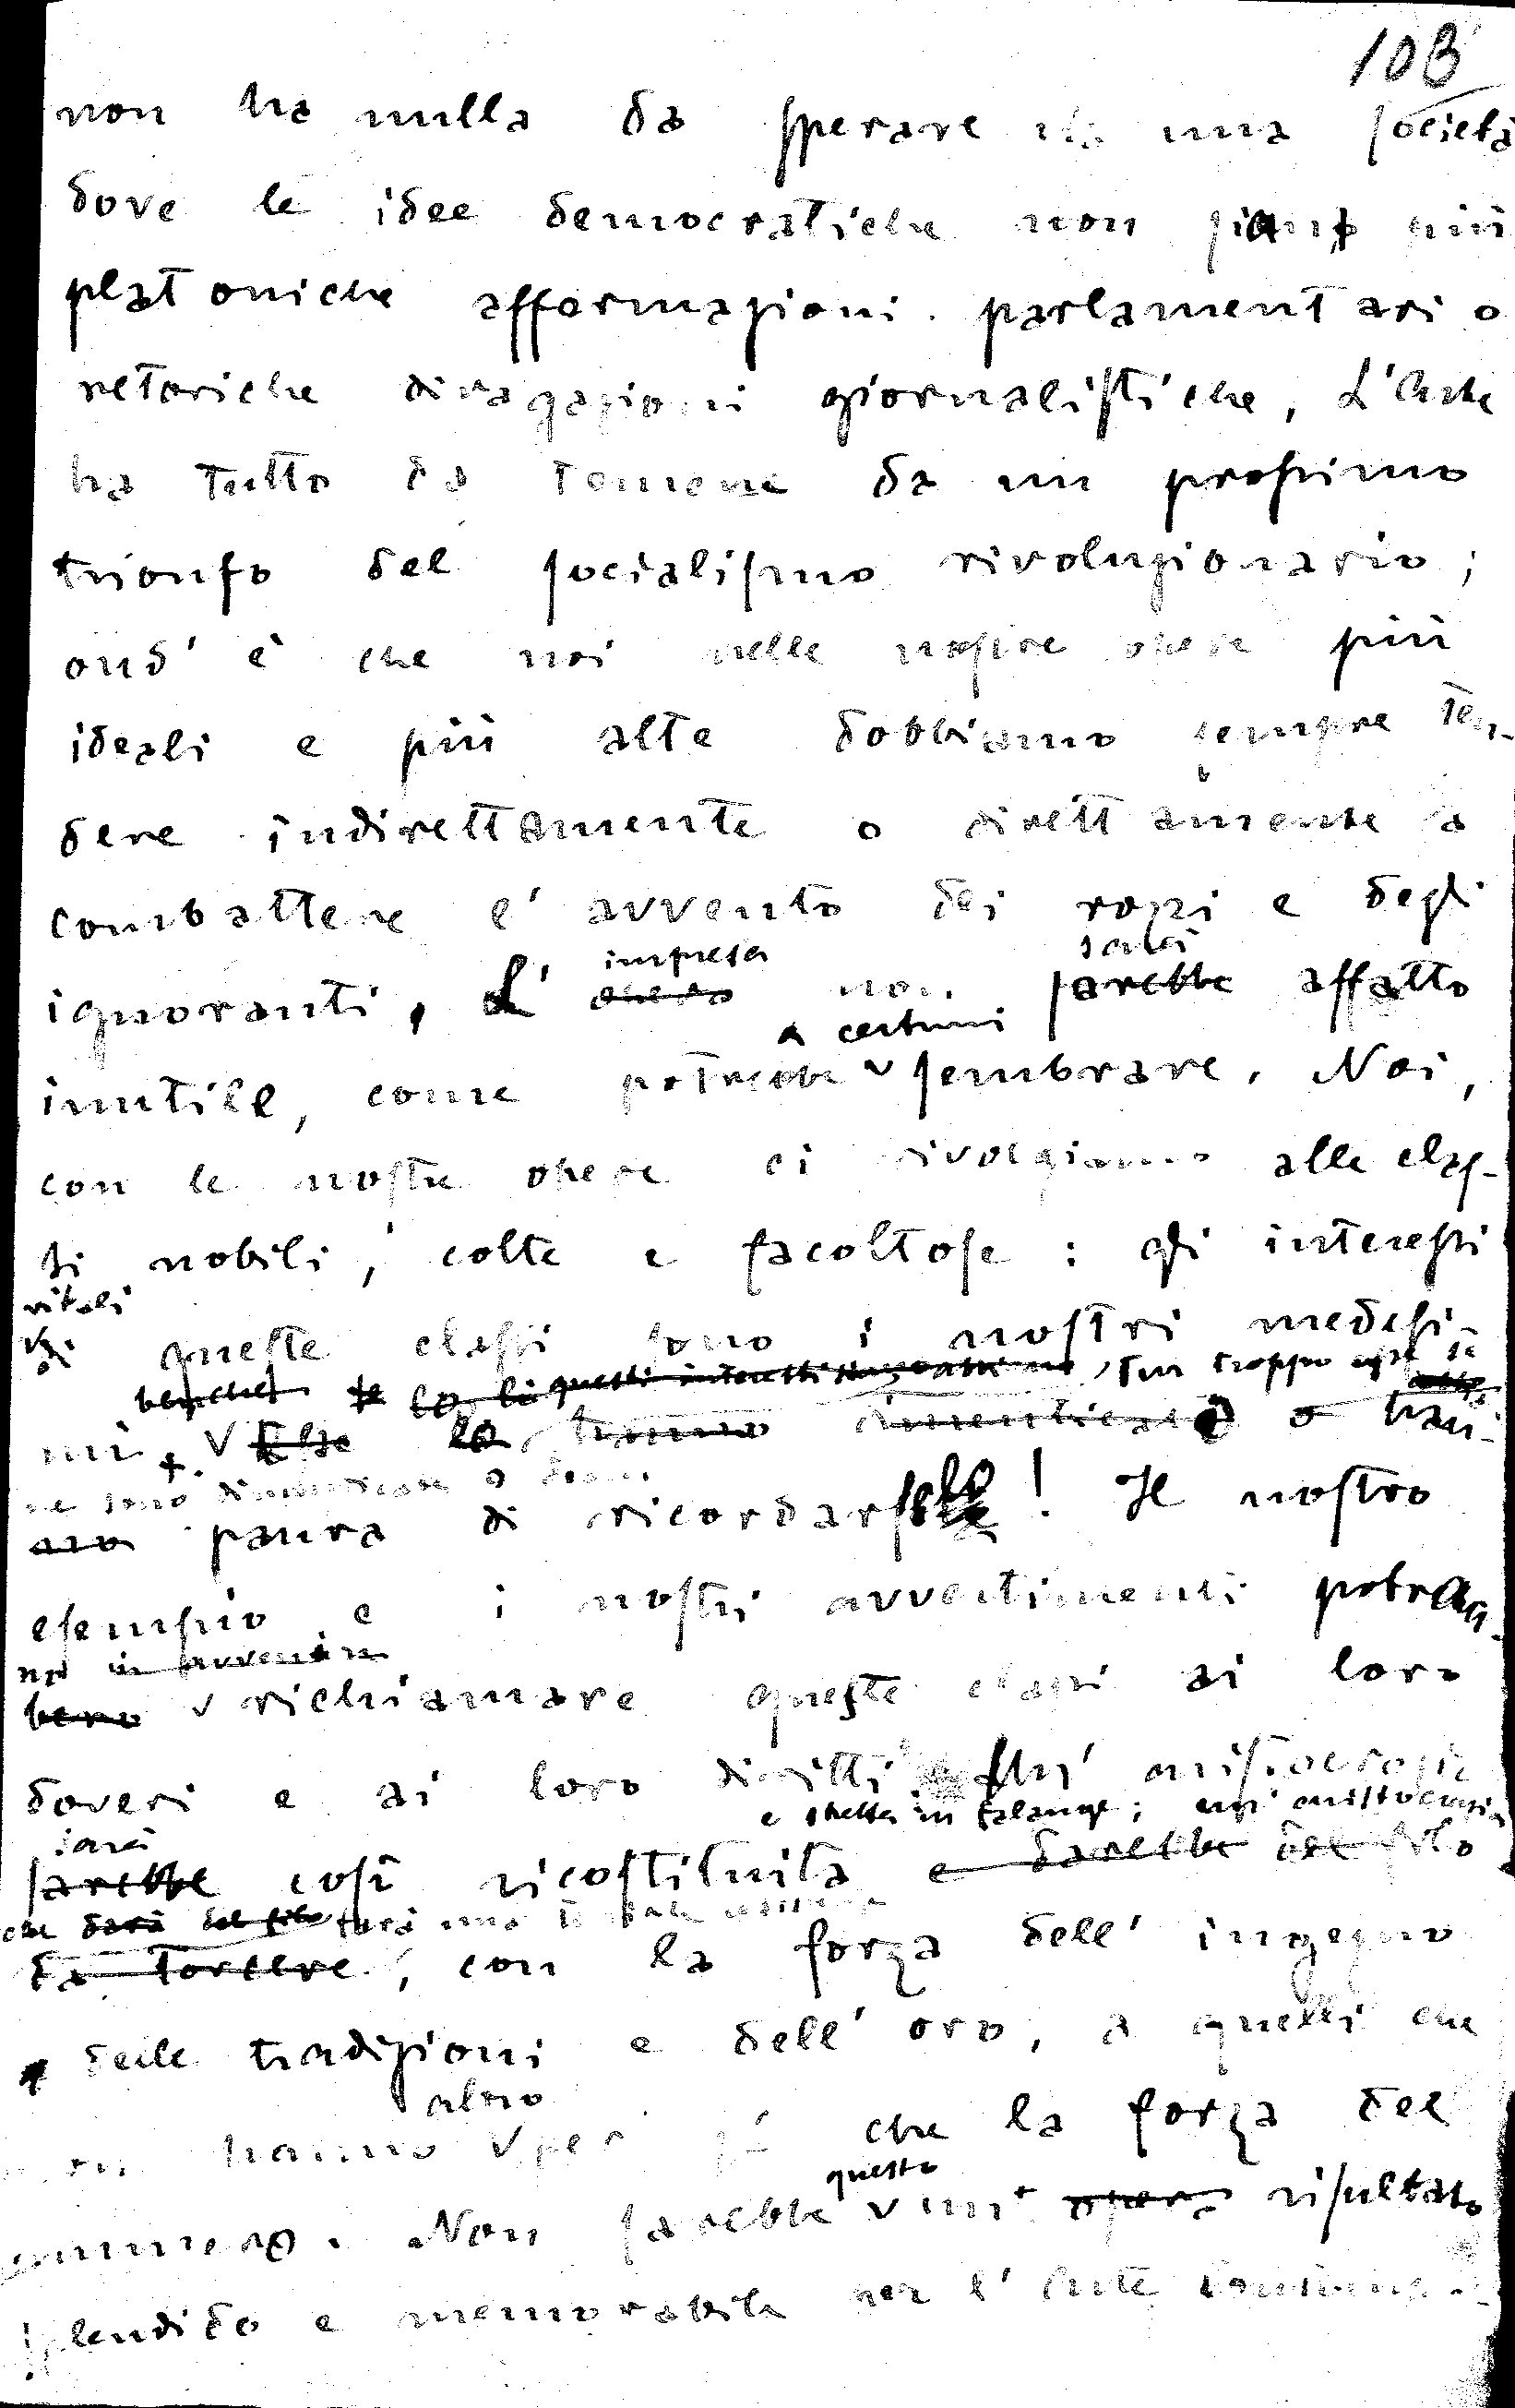 103
non ha nulla da sperare da una società
dove le idee democratiche non siano più
platoniche affermazioni parlamentari o
retoriche divagazioni giornalistiche, L'Arte
ha tutto da temere da un prossimo
trionfo del socialismo rivoluzionario;
ond' è che noi nelle nostre opere più
ideali e più alte dobbiamo sempre ten-
dere indirettamente o direttamente a
combattere l' avvento dei rozzi e degli
impresa sarà
ignoranti, L' non sarebbe affatto
a certuni
inutile, come potrebbe sembrare. Noi,
con le nostre opere ci rivolgiamo alle clas-
si nobili, colte e facoltose: gli interessi
vitali
di queste classi sono i nostri medesi-
benchè questi interessi pur troppo esse se
mi. Esse lo hanno dimenticato o han-
ne sono dimenticate o
no paura di ricordarselo! Il nostro
esempio e i nostri avvertimenti potran-
no in avvenire
bero richiamare queste classi ai loro
doveri e ai loro diritti. Un' aristocrazia
e stretta in falange; un' aristocrazia
sarà
sarebbe così ricostituita e darebbe del filo
che darà del filo farà una
da torcere, con la forza dell' ingegno
delle tradizioni e dell' oro, a quelli che
altro
non hanno per sé che la forza del
questo
numero. Non sarebbe un' opera risultato
splendido e memorabile per l' Arte